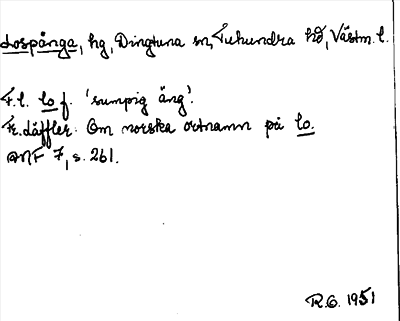 Lospånga, hg, Dingtuna sn, Tuhundra hd, Västm. l.
F.l. lo f. 'sumpig äng'.
Fr. Läffler. Om norska ortnamn på lo.
ANF 7, s. 261.
R.G. 1951